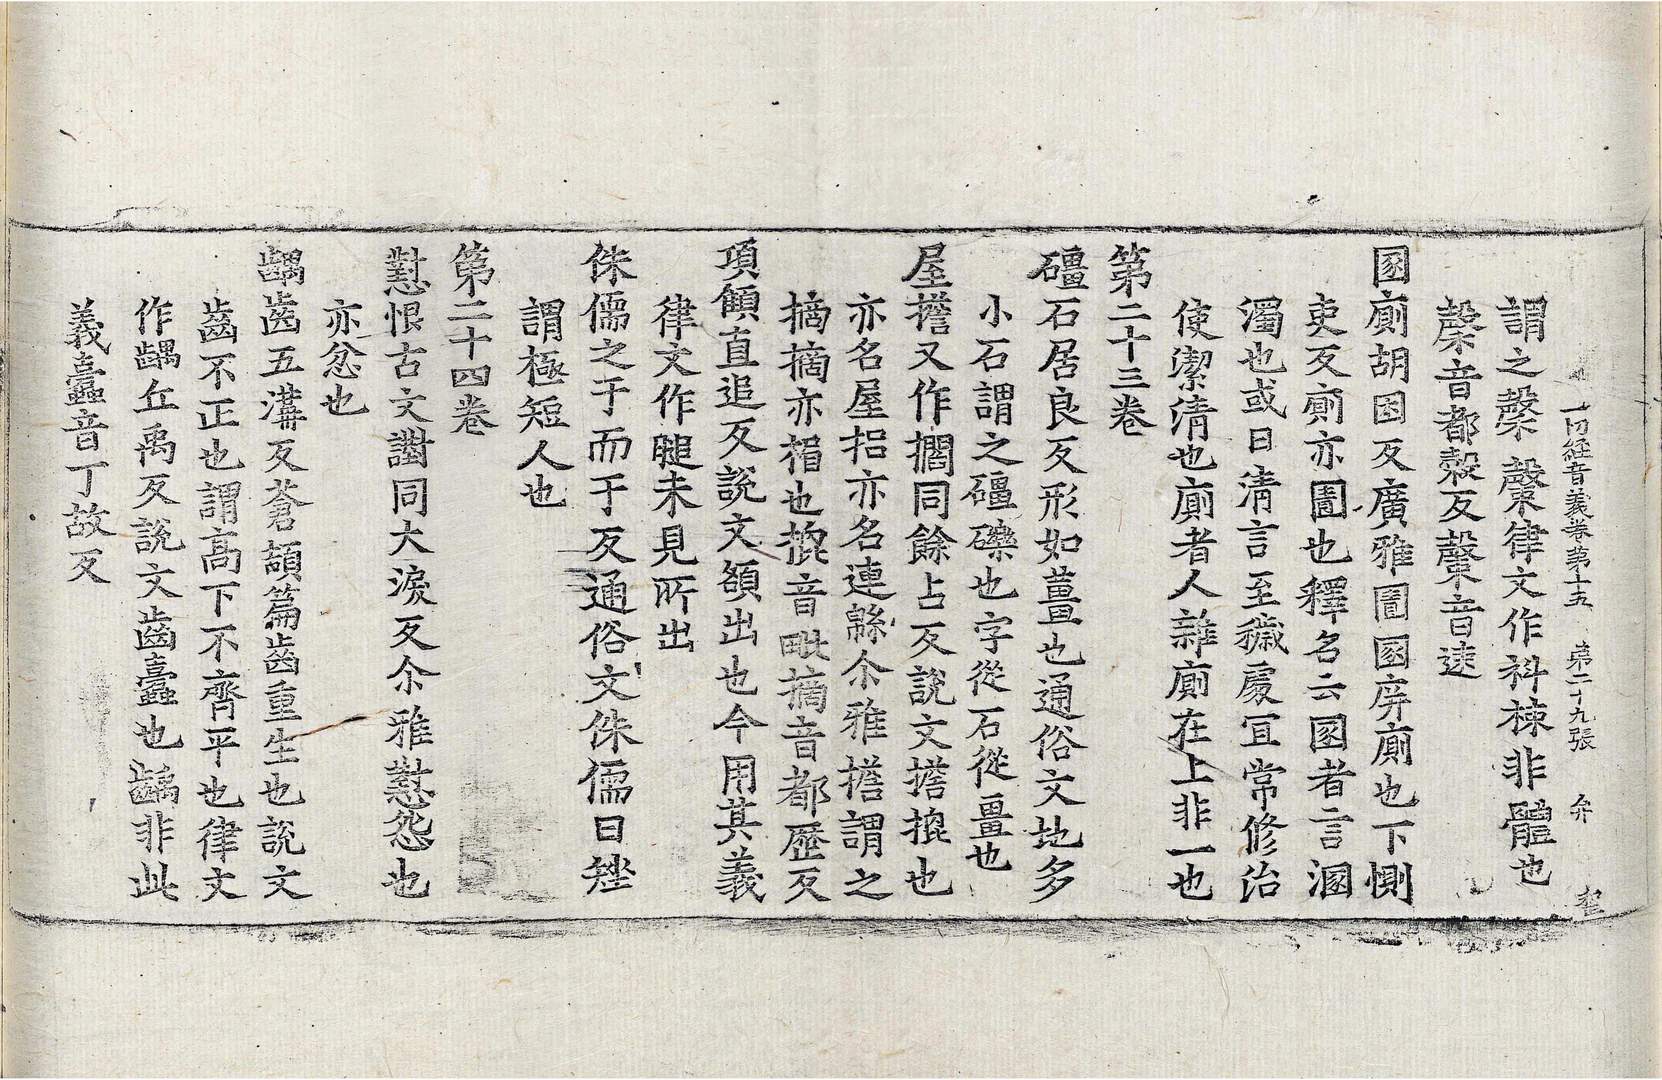 一切経音義卷第十五 第二十九張 弁
謂之槃槖律文作科棟非體也
槃音都縠反槖音速
圂廁胡困反廣雅圊圂屏廁也下惻
吏反廁亦圊也釋名云圂者言溷
濁也或曰清言至穢處宜常修治
使潔清也廁者人雜廁在上非一也
第二十三卷
礓石居良反形如薑也通俗文地多
小石謂之礓礫也字從石從畺也
屋擔又作櫩同餘占反說文擔㨪也
亦名屋梠亦名連緜尒雅擔謂之
摘摘亦梠也㨪音毗摘音都歷反
項䫌直追反說文頟出也今用其義
律文作膇未見所出
侏儒之于而于反通俗文侏儒曰矬
謂極短人也
第二十四卷
懟恨古文譵同大淚反尒雅懟怨也
亦忿也
齵齒五溝反蒼頡篇齒重生也說文
齒不正也謂高下不齊平也律文
作齲丘禹反說文齒蠹也齲非此
義蠹音丁故反